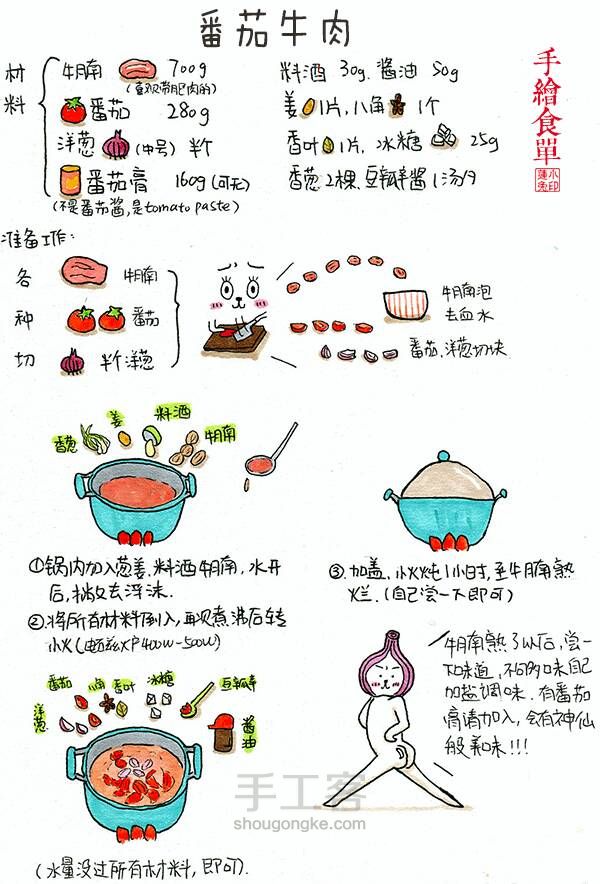 番茄牛肉
手繪食單
材料
牛腩 700g
(喜欢带肥肉的)
番茄 280g
洋葱 (中号) 半个
番茄膏 160g (可无)
(不是番茄酱,是tomato paste)
料酒 30g、酱油 50g
姜 1片,八角 1个
香叶 1片,冰糖 25g
香葱2棵、豆瓣酱1汤勺
准备工作:
各种切
牛腩
番茄
半个洋葱
牛腩泡
去血水
番茄、洋葱切块
香葱
姜
料酒
牛腩
①锅内加入葱姜、料酒牛腩,水开
后,撇去浮沫.
②将所有材料倒入,再次煮沸后转
小火(电磁炉400W-500W)
③加盖,小火炖1小时,至牛腩熟
烂.(自己尝一下即可)
洋葱
番茄
八角
香叶
冰糖
豆瓣酱
酱油
(水量没过所有材料,即可).
牛腩熟了以后,尝一
下味道,不同口味自己
加盐调味.有番茄
膏请加入,会有神仙
般美味!!!
手工客
shougongke.com